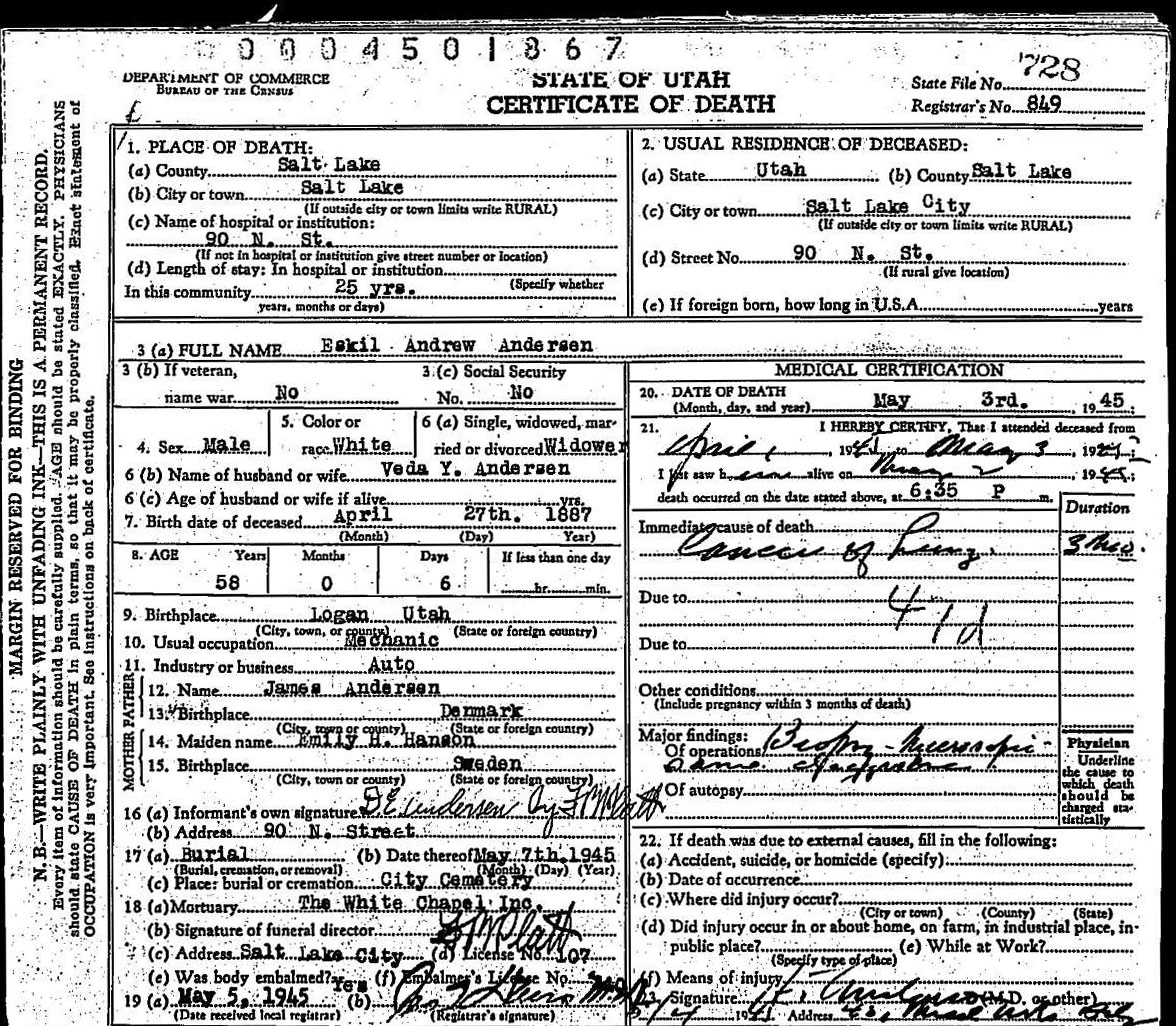 0004501867
DEPARTMENT OF COMMERCE
BUREAU OF THE CENSUS
STATE OF UTAH
CERTIFICATE OF DEATH
State File No. 728
Registrar's No. 849
MARGIN RESERVED FOR BINDING
N. B.—WRITE PLAINLY WITH UNFADING INK—THIS IS A PERMANENT RECORD.
Every item of information should be carefully supplied. AGE should be stated EXACTLY. PHYSICIANS
should state CAUSE OF DEATH in plain terms, so that it may be properly classified. Exact statement of
OCCUPATION is very important. See instructions on back of certificate.
1. PLACE OF DEATH:
(a) County Salt Lake
(b) City or town Salt Lake
(If outside city or town limits write RURAL)
(c) Name of hospital or institution:
90 N. St.
(If not in hospital or institution give street number or location)
(d) Length of stay: In hospital or institution
(Specify whether
In this community 25 yrs.
years, months or days)
2. USUAL RESIDENCE OF DECEASED:
(a) State Utah (b) County Salt Lake
(c) City or town Salt Lake City
(If outside city or town limits write RURAL)
(d) Street No. 90 N. St.
(If rural give location)
(e) If foreign born, how long in U.S.A. years
3 (a) FULL NAME Eskil Andrew Andersen
3 (b) If veteran, 3 (c) Social Security
name war No No. No
4. Sex Male 5. Color or race White 6 (a) Single, widowed, married or divorced Widower
6 (b) Name of husband or wife Veda Y. Andersen
6 (c) Age of husband or wife if alive yrs.
7. Birth date of deceased April 27th. 1887
(Month) (Day) Year)
8. AGE Years Months Days If less than one day
58 0 6 hr. min.
9. Birthplace Logan Utah
(City, town, or county) (State or foreign country)
10. Usual occupation Mechanic
11. Industry or business Auto
FATHER
12. Name James Andersen
13. Birthplace Denmark
(City, town or county) (State or foreign country)
MOTHER
14. Maiden name Emily H. Hanson
15. Birthplace Sweden
(City, town or county) (State or foreign country)
16 (a) Informant's own signature Andersen By
(b) Address 90 N. Street
17 (a) Burial (b) Date thereof May 7th. 1945
(Burial, cremation, or removal) (Month) (Day) (Year)
(c) Place: burial or cremation City Cemetery
18 (a) Mortuary The White Chapel Inc.
(b) Signature of funeral director
(c) Address Salt Lake City (d) License No. 107
(e) Was body embalmed? Yes (f) Embalmer's License No.
19 (a) May 5, 1945 (b)
(Date received local registrar) (Registrar's signature)
MEDICAL CERTIFICATION
20. DATE OF DEATH
(Month, day, and year) May 3rd. , 1945;
21. I HEREBY CERTIFY, That I attended deceased from
April, to May 3
I last saw him alive on May 2
death occurred on the date stated above, at 6:35 P m.
Duration
Immediate cause of death
Cancer of Lung. 3 mo.
Due to
41d
Due to
Other conditions
(Include pregnancy within 3 months of death)
Major findings:
Of operations Biopsy - Microscopic
Of autopsy
Physician
Underline
the cause to
which death
should be
charged sta-
tistically
22. If death was due to external causes, fill in the following:
(a) Accident, suicide, or homicide (specify)
(b) Date of occurrence
(c) Where did injury occur?
(City or town) (County) (State)
(d) Did injury occur in or about home, on farm, in industrial place, in-
public place? (e) While at Work?
(Specify type of place)
(f) Means of injury
23. Signature (M.D. or other)
Address